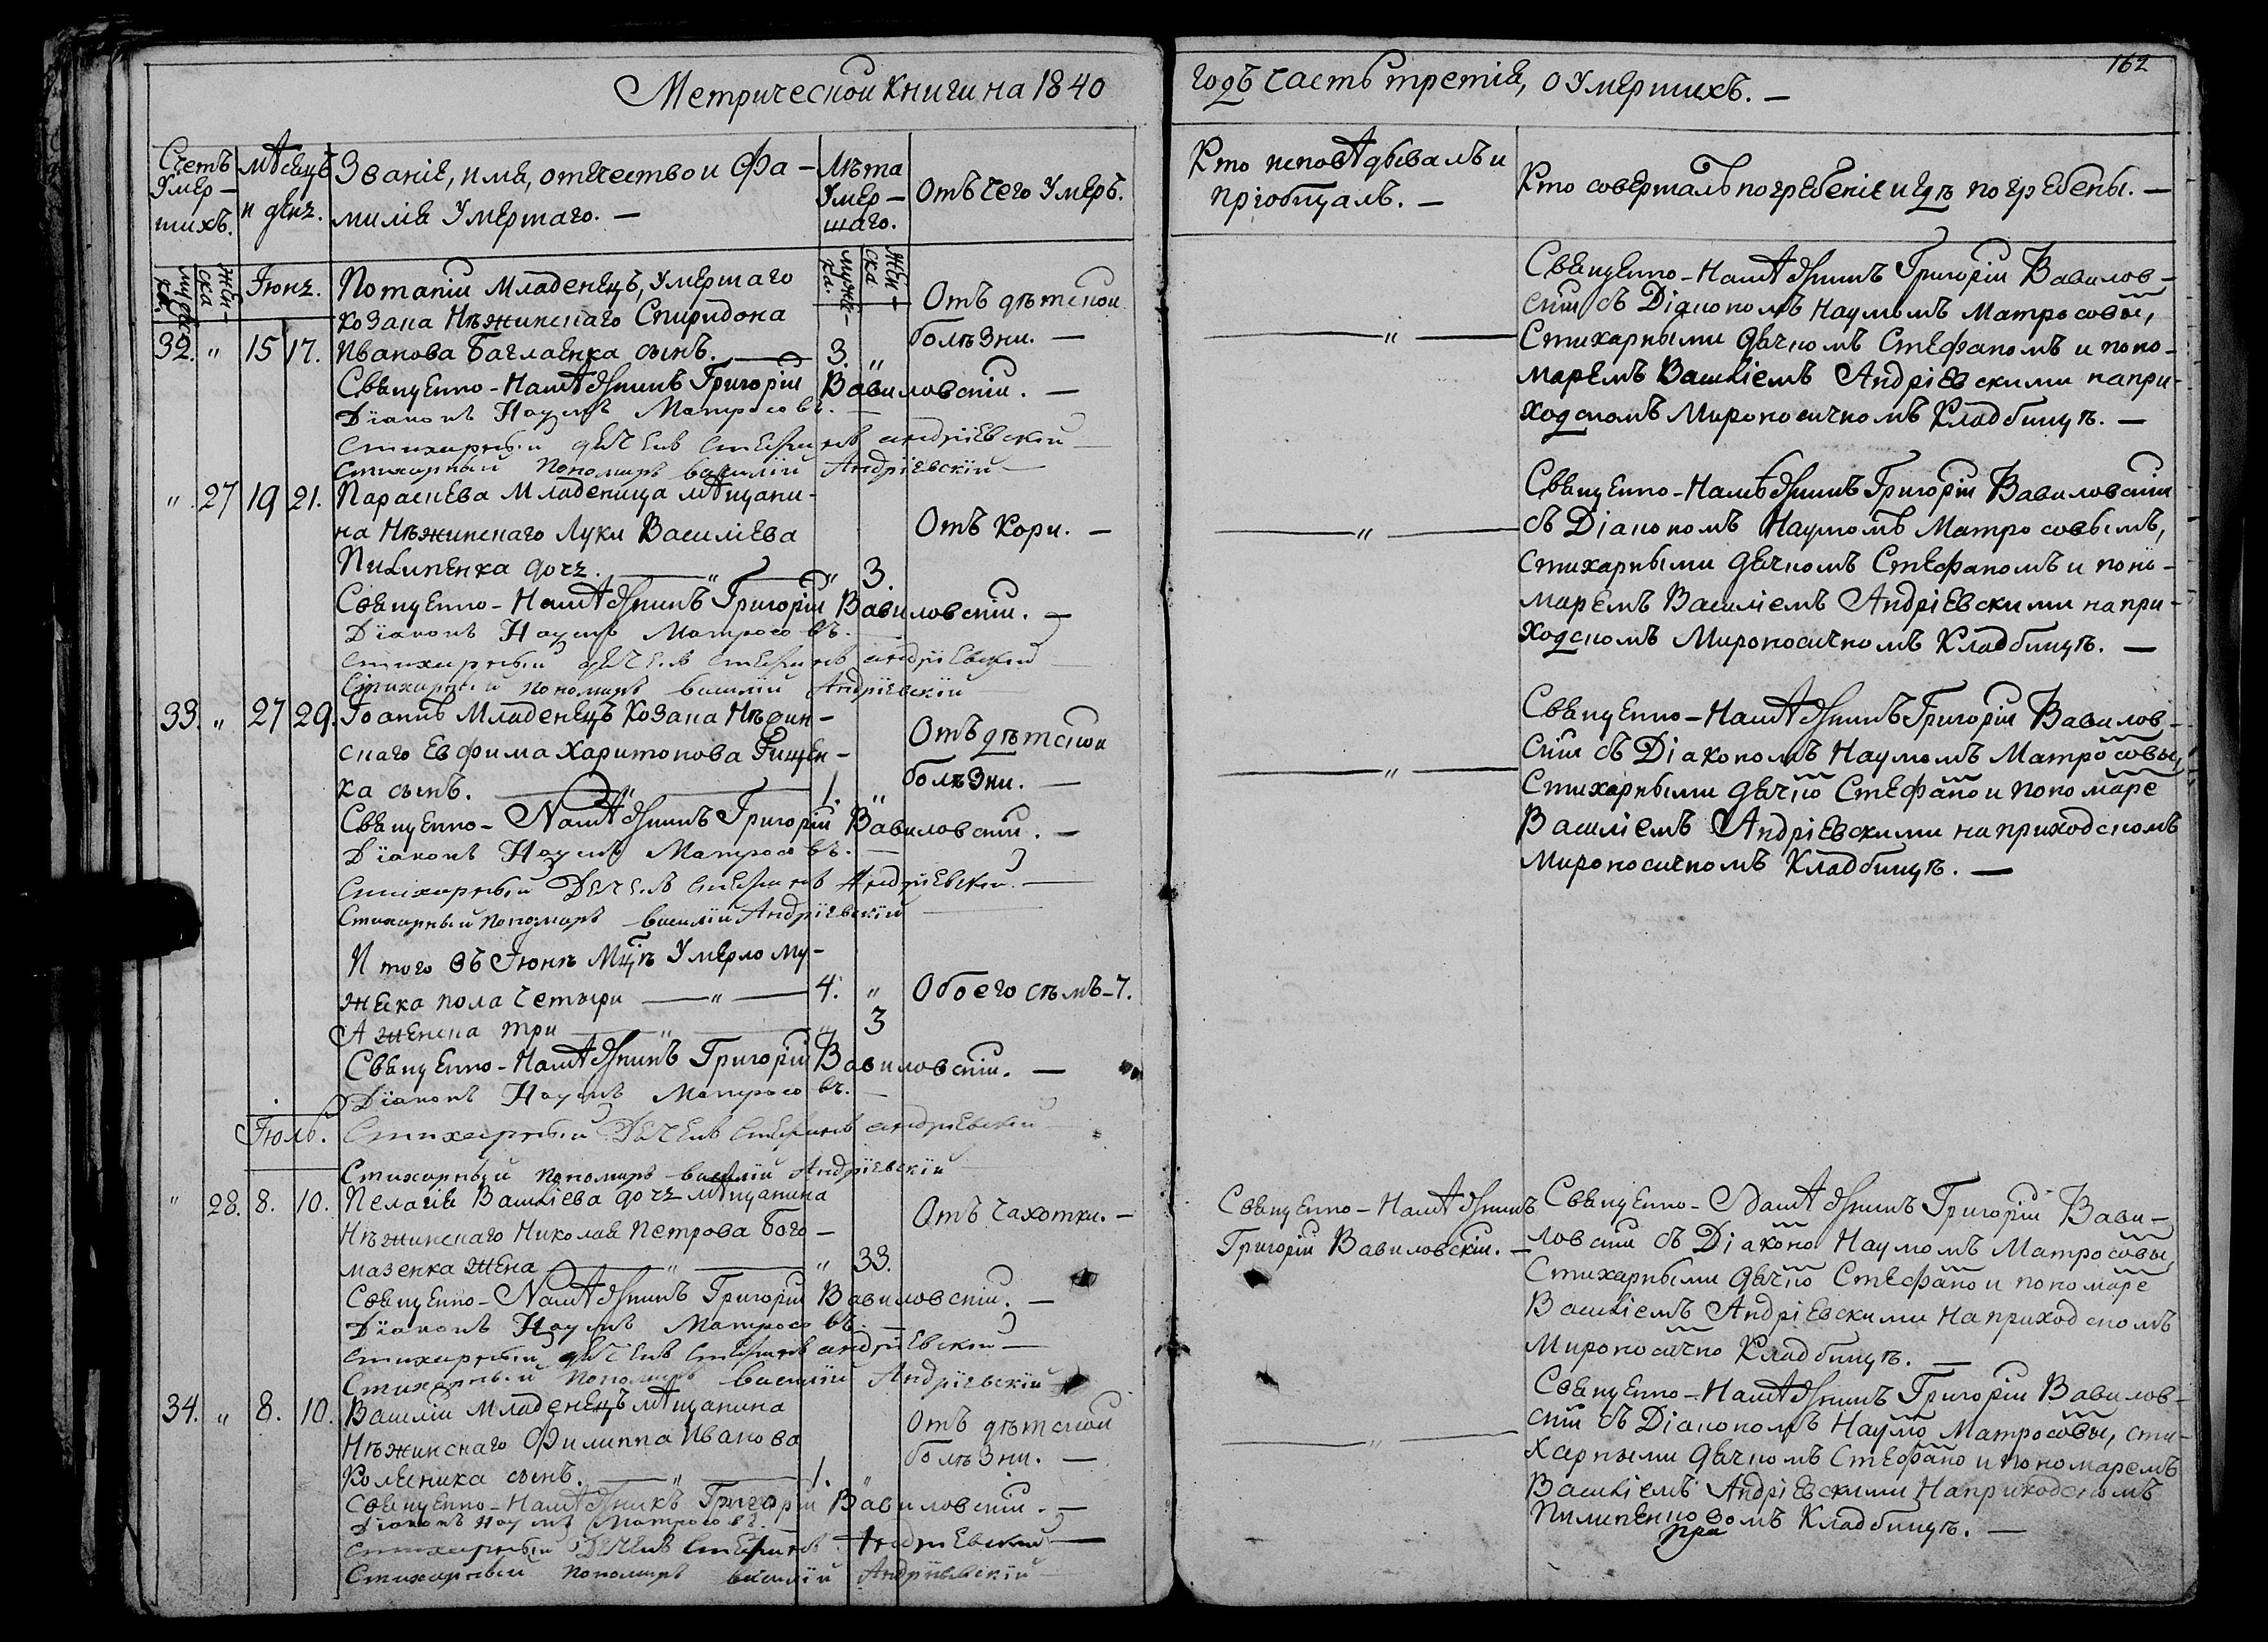 Метрической Книги на 1840
Счетъ Умер-шихъ.
Мѣсяцъ и день.
Званіе, имя, отечество и Фа-
милія Умершаго. —
Лѣта Умер-шаго.
Отъ чего Умеръ.
мужеска.
женска
Іюнь.
мужеска.
женска
Потапій Младенецъ, Умершаго
козака Нѣжинскаго Спиридона
32. " 15 17. Иванова Баглаенка сынъ. — 3. " Отъ дѣтской
болѣзни. —
Священно-Намѣстникъ Григорій Вавиловскій. —
Діаконъ Наумъ Матросовъ. —
Стихарный дьячекъ Стефанъ Андріевскій —
Стихарный Пономарь Василій Андріевскій —
" 27 19 21. Параскева Младеница мѣщани-
на Нѣжинскаго Луки Василіева Отъ Кори. —
Пилипенка дочь. — " — " 3.
Священно-Намѣстникъ Григорій Вавиловскій. —
Діаконъ Наумъ Матросовъ. —
Стихарный дьячекъ Стефанъ Андріевскій —
Стихарный пономарь Василій Андріевскій —
33. " 27 29. Іоаннъ Младенецъ Козака Нѣжин-
скаго Евфима Харитонова Отъ дѣтской
ка сынъ. — " — 1. " болѣзни. —
Священно-Намѣстникъ Григорій Вавиловскій. —
Діаконъ Наумъ Матросовъ. —
Стихарный Дьячекъ Стефанъ Андріевскій. —
Стихарный пономарь Василій Андріевскій —
Итого въ Іюнѣ Мцѣ Умерло му-
жеска пола четыри — " — 4. " Обоего сѣмъ-7.
А женска три — " — " 3
Священно-Намѣстникъ Григорій Вавиловскій. —
Діаконъ Наумъ Матросовъ. —
Іюль. Стихарный Дьячекъ Стефанъ Андріевскій
Стихарный пономарь Василій Андріевскій
" 28. 8. 10. Пелагія Василіева дочь мѣщанина
Нѣжинскаго Николая Петрова Бого- Отъ чахотки. —
мазенка жена — " — " 33.
Священно-Намѣстникъ Григорій Вавиловскій. —
Діаконъ Наумъ Матросовъ. —
Стихарный дьячекъ Стефанъ Андріевскій —
Стихарный пономарь Василій Андріевскій
34. " 8. 10. Василій младенецъ мѣщанина
Нѣжинскаго Филиппа Иванова Отъ дѣтской
Колесника сынъ. — " — 1. " болѣзни. —
Священно-Намѣстникъ Григорій Вавиловскій. —
Діаконъ Наумъ Матросовъ.
Стихарный Дьячекъ Стефанъ Андріевскій —
Стихарный пономарь Василій Андріевскій —
162
годъ часть третія, о Умершихъ. —
Кто исповѣдывалъ и
пріобщалъ. —
Кто совершалъ погребеніе и гдѣ погребены. —
Священно-Намѣстникъ Григорій Вавилов-
скій съ Діакономъ Наумомъ Матросовы,
— " — Стихарными дьячкомъ Стефаномъ и поно-
маремъ Василіемъ Андріевскими на при-
ходскомъ Мироносичномъ Кладбищѣ. —
Священно-Намѣстникъ Григорій Вавиловскій
— " — съ Діакономъ Наумомъ Матросовымъ,
стихарными дьячкомъ Стефаномъ и поно-
маремъ Василіемъ Андріевскими на при-
ходскомъ Мироносичномъ Кладбищѣ. —
Священно-Намѣстникъ Григорій Вавилов-
— " — скій съ Діакономъ Наумомъ Матросовы,
Стихарными дьячко Стефано и пономаре
Василіемъ Андріевскими на приходскомъ
Мироносичномъ Кладбищѣ. —
Священно-Намѣстникъ
Григорій Вавиловскій. —
Священно-Намѣстникъ Григорій Вави-
ловскій съ Діаконо Наумомъ Матросовы
Стихарными дьячко Стефано и пономаре
Василіемъ Андріевскими на приходскомъ
Мироносично Кладбищѣ. —
Священно-Намѣстникъ Григорій Вавилов-
— " — скій съ Діакономъ Наумо Матросовы, сти-
харными дьячкомъ Стефано и пономаремъ
Василіемъ Андріевскими На приходскомъ
Пилипенковомъ Кладбищѣ. —